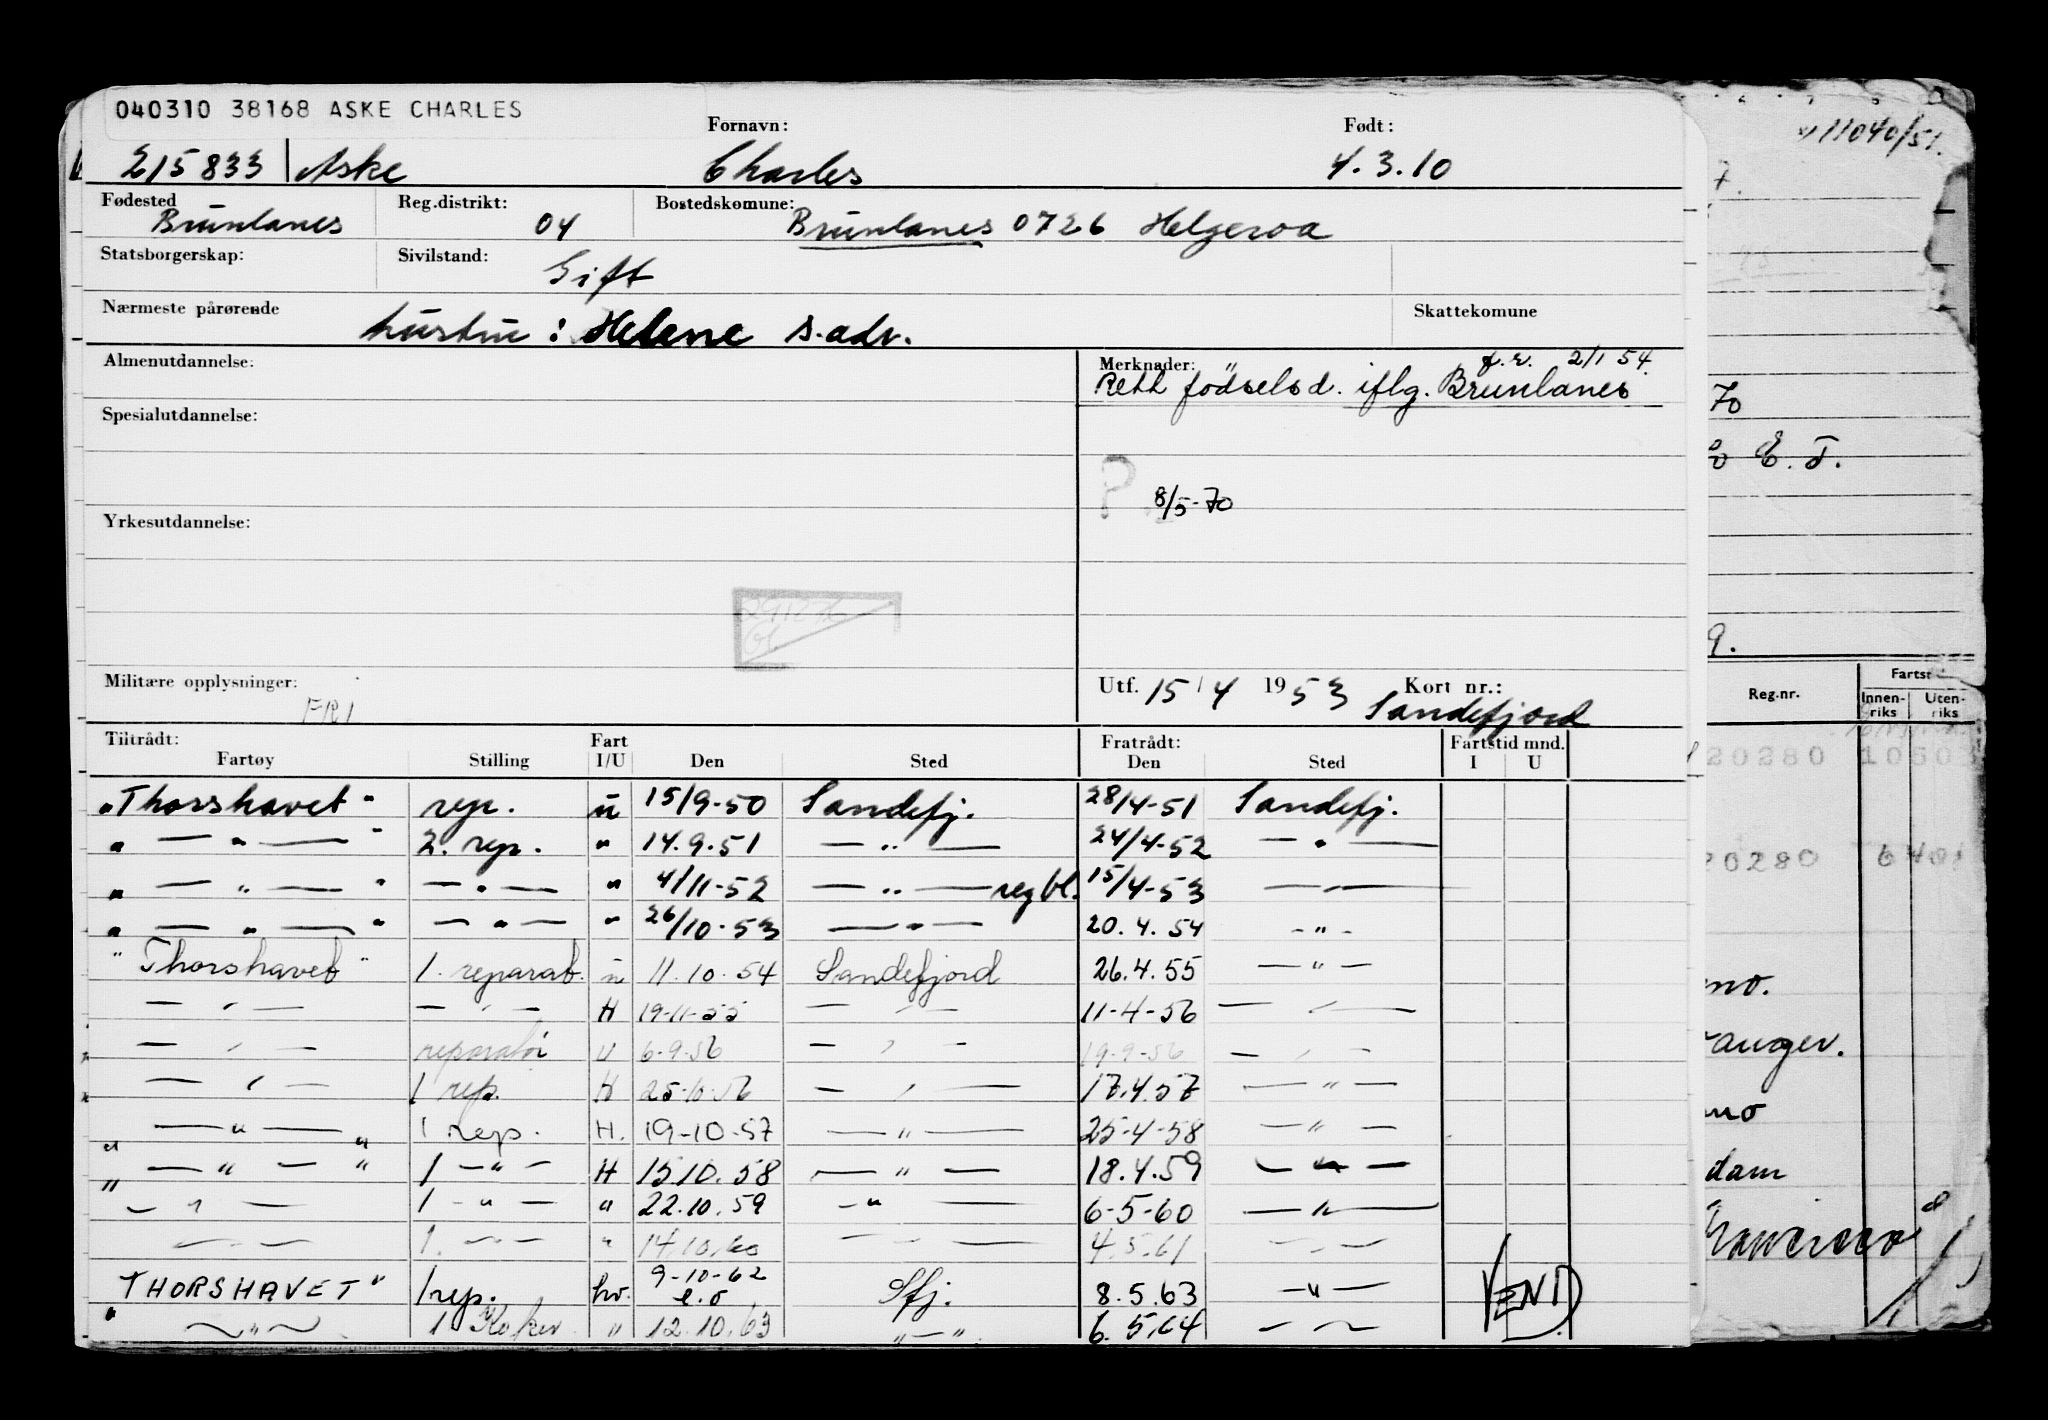 040310 38168 ASKE CHARLES
Fornavn: Født:
215833 Aske Charles 4.3.10
Fødested Reg.distrikt: Bostedskomune:
Brunlanes 04 Brunlanes 0726 Helgeroa
Statsborgerskap: Sivilstand: Gift
Nærmeste pårørende Skattekomune
hustru: Helene s.adr.
Almenutdannelse: Merknader: f.r. 2/1 54.
Rett födselsd. iflg. Brunlanes
Spesialutdannelse:
? 8/5-70
Yrkesutdannelse:
Militære opplysninger: Utf. 15/4 1953 Kort nr.:
FRI Sandefjord
Tiltrådt: Fart Fratrådt: Fartstid mnd.
Fartøy Stilling I/U Den Sted Den Sted I U
"Thorshavet" rep. u 15/9-50 Sandefj. 28/4-51 Sandefj.
" — " — " 2. rep. " 14.9.51 — " — 24/4-52 — " —
" — " — " — " — " 4/11-52 — " — reg bl. 15/4-53 — " —
" — " — " — " — " 26/10-53 — " — 20.4.54 - " -
"Thorshavet" 1. reparat. u 11.10.54 Sandefjord 26.4.55 — " —
— " — — " — H 19-11-55 — " — 11-4-56 — " —
— " — reparatør U 6-9-56 — " — 19-9-56 — " —
— " — 1 rep. H 25-10-56 — " — 17.4.57 — " —
" — " — " 1 rep. H. 19-10-57 — " — 25-4-58 — " —
" — " — " 1 — " — H 15.10.58 — " — 18.4.59 — " —
— " — 1 - " — " 22.10.59 — " — 6-5-60 — " —
— " — 1. — " — " 14.10.60 — " — 4.5.61 — " —
THORSHAVET" 1 rep. hv. 9-10-62 e.o Sfj. 8.5.63 — " — VEND
" — " — 1 Koker " 12.10.63 " — " 6.5.64 — " —
11040/51.
7.
70
E. T.
9.
Fartst
Reg.nr. Innen-riks Uten-riks
20280
20280
no.
anger.
mo
dam